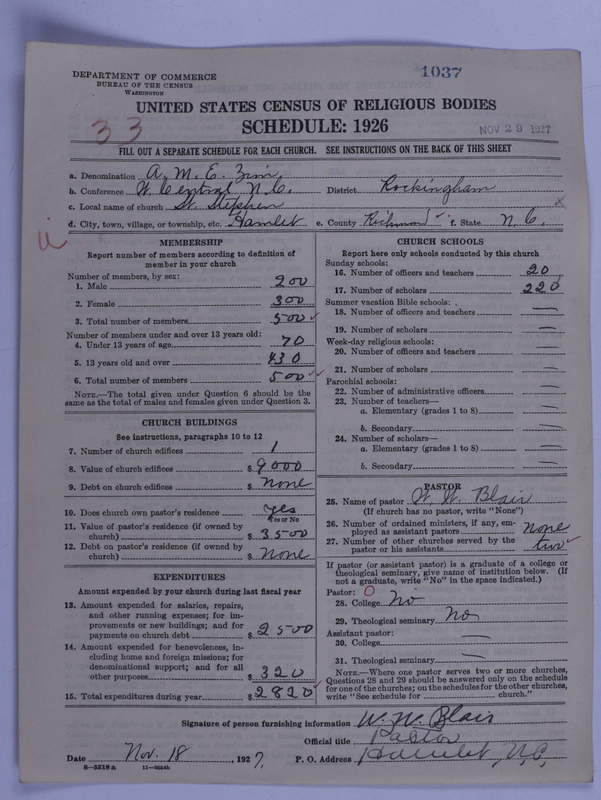 DEPARTMENT OF COMMERCE
BUREAU OF THE CENSUS
WASHINGTON
1037
UNITED STATES CENSUS OF RELIGIOUS BODIES
33
SCHEDULE: 1926
NOV 29 1927
FILL OUT A SEPARATE SCHEDULE FOR EACH CHURCH. SEE INSTRUCTIONS ON THE BACK OF THIS SHEET
a. Denomination A. M. E. Zion
b. Conference W. Central N. C. District Rockingham
c. Local name of church St. Stephen
d. City, town, village, or township, etc. Hamlet e. County Richmond f. State N. C.
MEMBERSHIP
Report number of members according to definition of member in your church
Number of members, by sex:
1. Male 200
2. Female 300
3. Total number of members 500
Number of members under and over 13 years old:
4. Under 13 years of age 70
5. 13 years old and over 430
6. Total number of members 500
NOTE.—The total given under Question 6 should be the
same as the total of males and females given under Question 3.
CHURCH BUILDINGS
See instructions, paragraphs 10 to 12
7. Number of church edifices 1
8. Value of church edifices $ 9000
9. Debt on church edifices $ None
10. Does church own pastor's residence? yes
Yes or No
11. Value of pastor's residence (if owned by
church) $ 3500
12. Debt on pastor's residence (if owned by
church) $ None
EXPENDITURES
Amount expended by your church during last fiscal year
13. Amount expended for salaries, repairs,
and other running expenses; for im-
provements or new buildings; and for
payments on church debt $ 2500
14. Amount expended for benevolences, in-
cluding home and foreign missions; for
denominational support; and for all
other purposes $ 320
15. Total expenditures during year $ 2820
CHURCH SCHOOLS
Report here only schools conducted by this church
Sunday schools:
16. Number of officers and teachers 20
17. Number of scholars 220
Summer vacation Bible schools:
18. Number of officers and teachers —
19. Number of scholars —
Week-day religious schools:
20. Number of officers and teachers —
21. Number of scholars —
Parochial schools:
22. Number of administrative officers —
23. Number of teachers—
a. Elementary (grades 1 to 8) —
b. Secondary —
24. Number of scholars—
a. Elementary (grades 1 to 8) —
b. Secondary —
PASTOR
25. Name of pastor W. W. Blair
(If church has no pastor, write "None")
26. Number of ordained ministers, if any, em-
ployed as assistant pastors None
27. Number of other churches served by the
pastor or his assistants two
If pastor (or assistant pastor) is a graduate of a college or
theological seminary, give name of institution below. (If
not a graduate, write "No" in the space indicated.)
Pastor: O
28. College No
29. Theological seminary No
Assistant pastor:
30. College —
31. Theological seminary —
NOTE.—Where one pastor serves two or more churches,
Questions 28 and 29 should be answered only on the schedule
for one of the churches; on the schedules for the other churches,
write "See schedule for church."
Signature of person furnishing information W. W. Blair
Official title Pastor
Date Nov. 18, 1927. P. O. Address Hamlet, N. C.